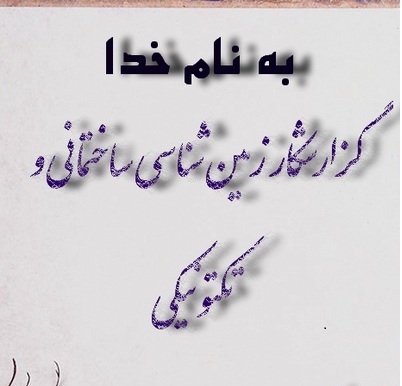 به نام خدا
گزارشکار زمین شناسی ساختمانی و
تکتونیکی